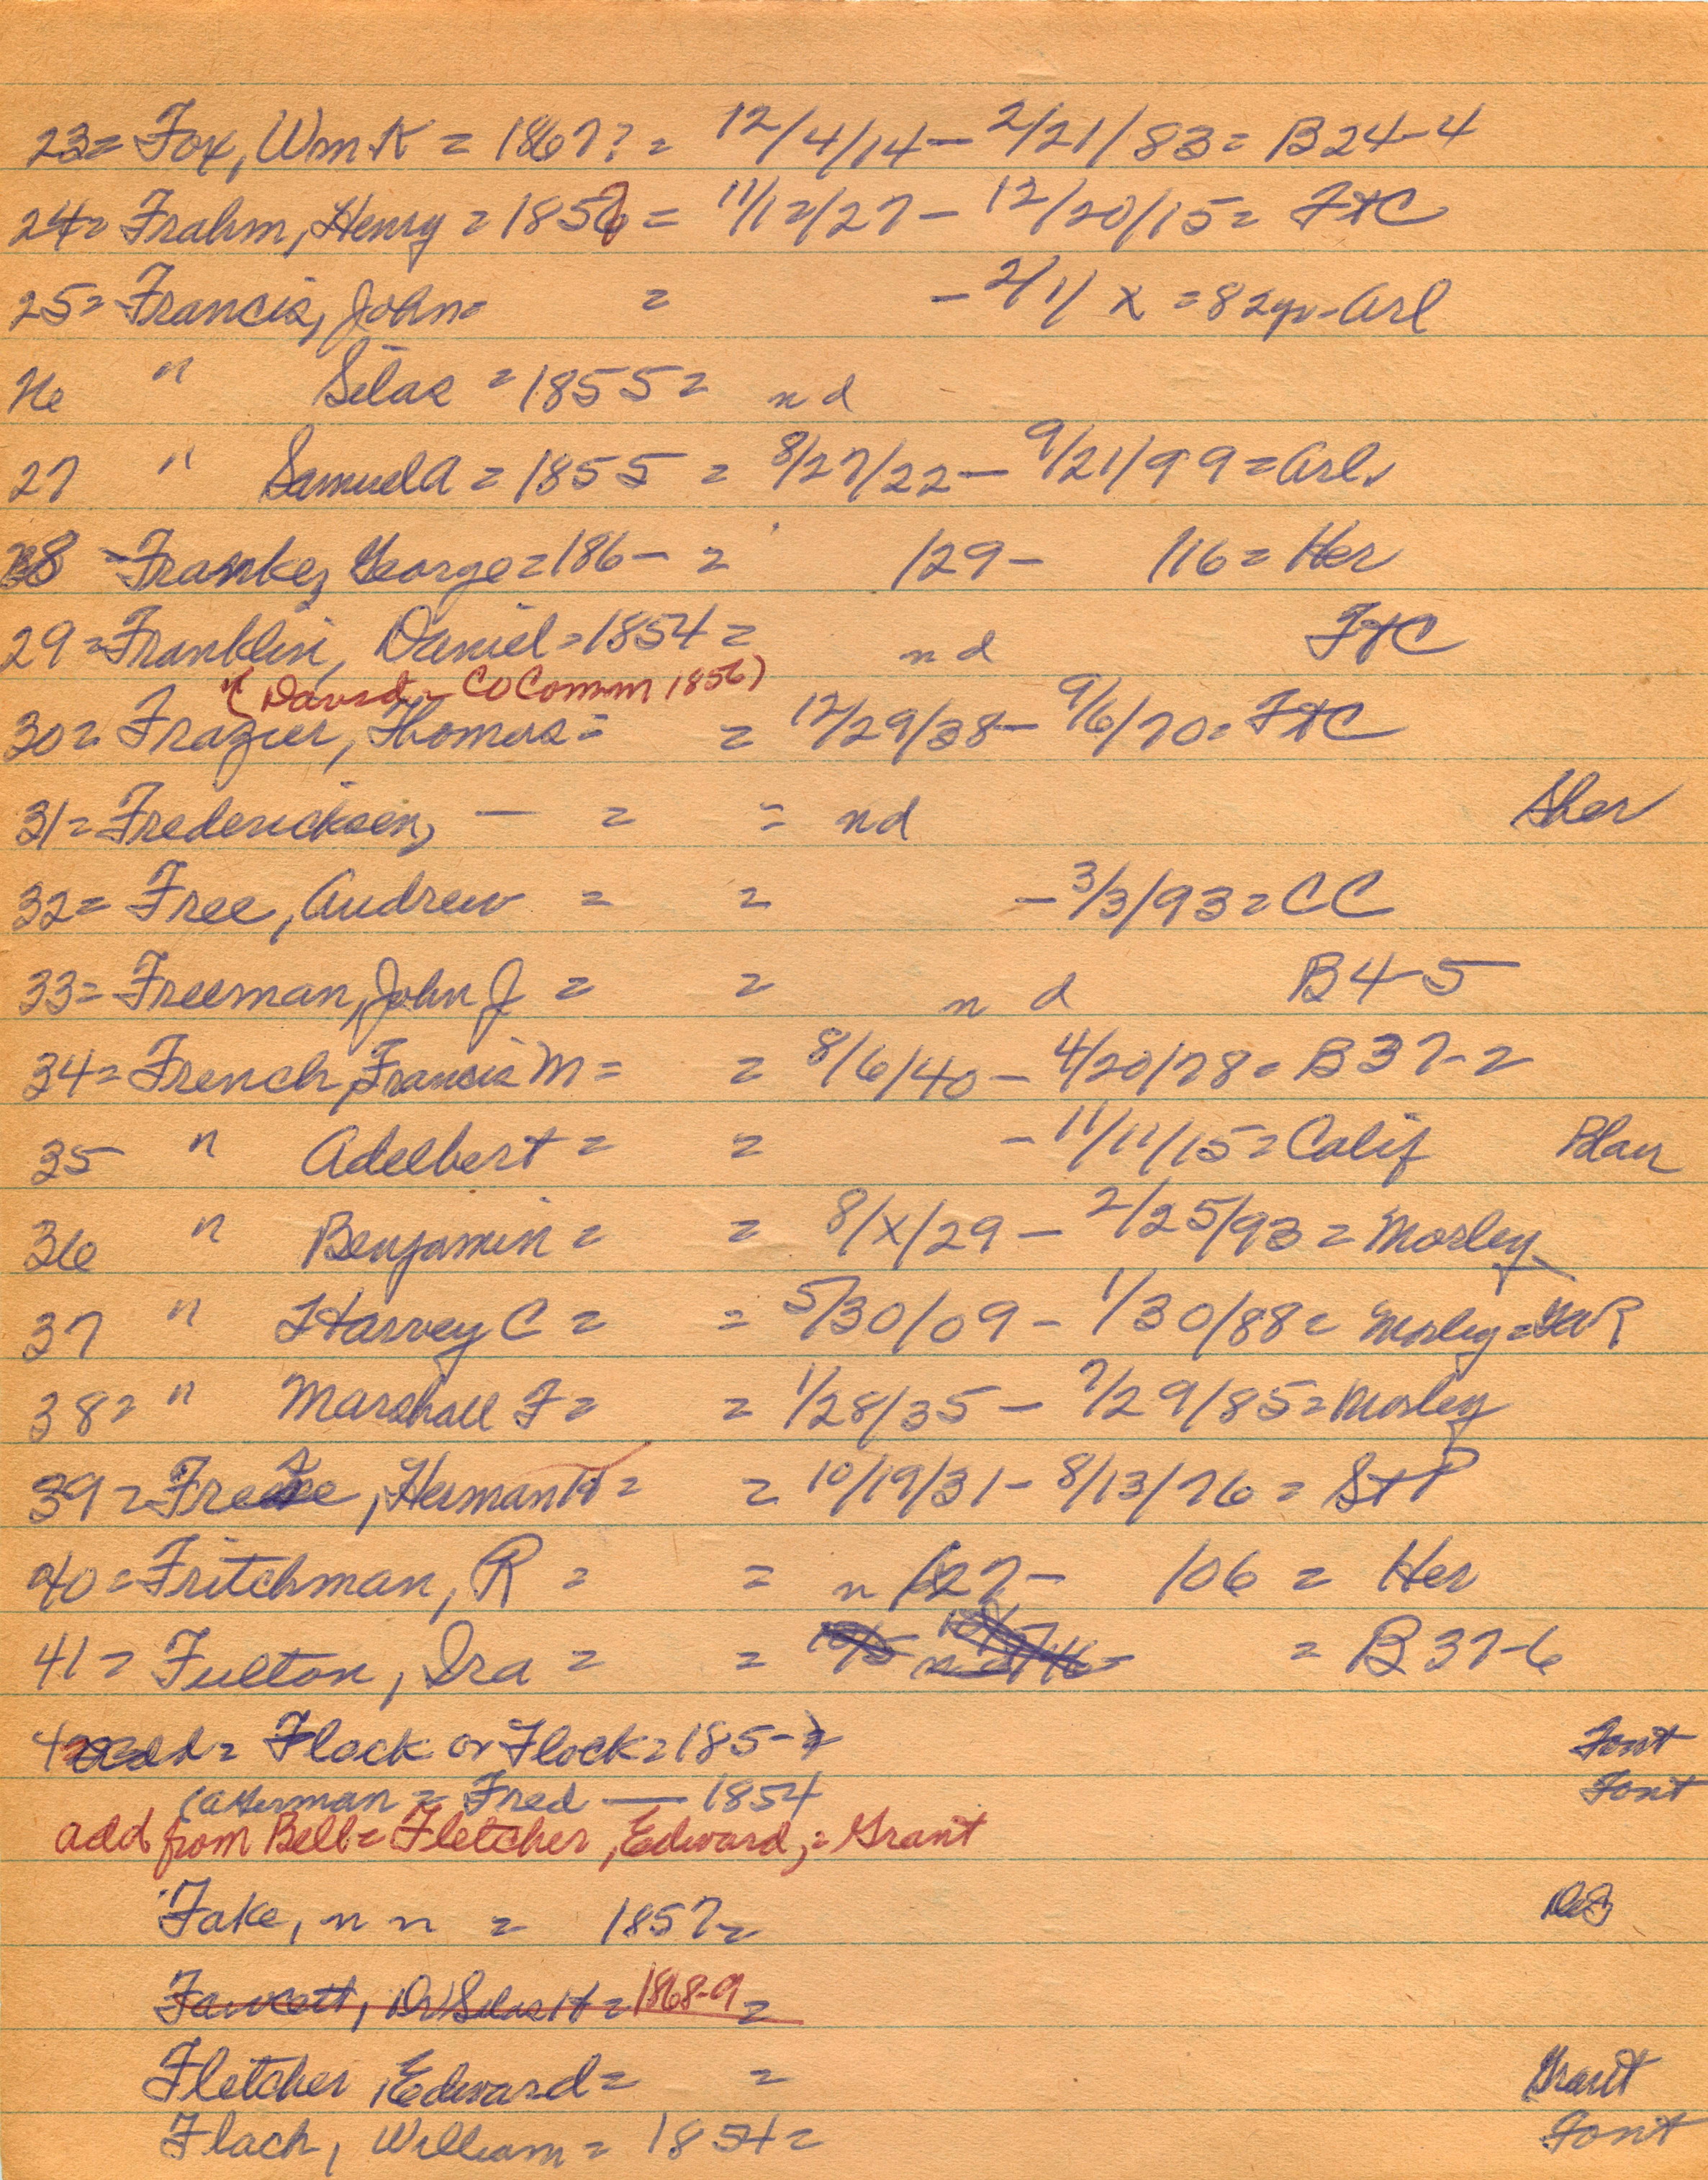 23= Fox, Wm K = 1867? = 12/4/14 - 2/21/83 = B24-4
24= Frahm, Henry = 1856 = 11/12/27 - 12/20/15 = FtC
25= Francis, John = = - 2/1/X = 82yr - Arl
26 " Silas = 1855 = nd
27 " Samuel A = 1855 = 8/27/22 - 9/21/99 = Arl.
28 Franke, George = 186- = /29 - /16 = Her
29 = Franklin, Daniel = 1854 = nd FtC
"( David - CO Comm 1856)
30 = Frazier, Thomas = = 12/29/38 - 9/6/70 = FtC
31 = Fredericksen, - = = nd Sher
32 = Free, Andrew = = - 3/3/93 = CC
33 = Freeman, John J = = nd B4-5
34 = French, Francis M = = 8/6/40 - 4/20/78 = B37-2
35 " Adelbert = = - 11/11/15 = Calif Blair
36 " Benjamin = = 8/X/29 - 2/25/93 = Morley
37 " Harvey C = = 5/30/09 - 1/30/88 = Morley =
38 = " Marshall F = = 1/28/35 - 7/29/85 = Morley
39 = , Herman H = = 10/19/31 - 8/13/76 = StP
40 = Fritchman, R = = n /27 - 106 = Her
41 = Fulton, Ira = = = B37-6
42 = Flack or Flock = 185- = Font
= Fred — 1854 Font
add from Bell = Fletcher, Edward, = Grant
Fake, n n = 1857 = DeS
Fawcett, Dr Silas H = 1868-9 =
Fletcher, Edward = = Grant
Flach, William = 1854 = Font